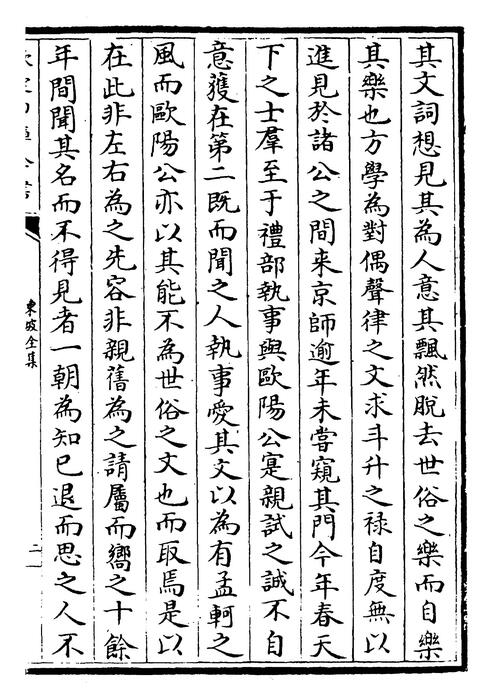 其文詞想見其為人意其飄然脫去世俗之樂而自樂
其樂也方學為對偶聲律之文求斗升之禄自度無以
進見於諸公之間来京師逾年未嘗窺其門今年春天
下之士羣至于禮部執事與歐陽公寔親試之誠不自
意獲在第二既而聞之人執事愛其文以為有孟軻之
風而歐陽公亦以其能不為世俗之文也而取焉是以
在此非左右為之先容非親舊為之請屬而嚮之十餘
年間聞其名而不得見者一朝為知已退而思之人不
東坡全集